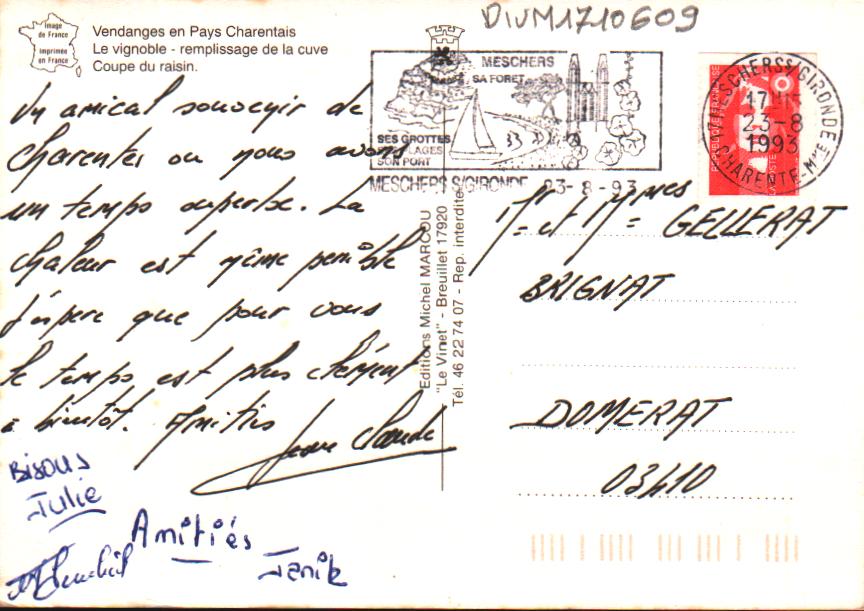 DIVM1710609
Image
de France
Imprimée
en France
Vendanges en Pays Charentais
Le vignoble - remplissage de la cuve
Coupe du raisin.
MESCHERS
SA FORET
SES GROTTES
PLAGES
SON PORT
MESCHERS S/GIRONDE 23-8-93
MESCHERS S/GIRONDE
17H
23-8
1993
CHARENTE-Mme
Un amical souvenir de
Charentes ou nous avons
un temps superbe. La
chaleur est même penible
J'espere que pour vous
le temps est plus clément
a bientôt. Amitiés
Jean Claude
Bisous
Julie
Amitiés
Janik
Editions Michel MARCOU
"Le Vinet" - Breuillet 17920
Tél. 46 22 74 07 - Rep. interdite
Mr et Mmes GELLERAT
BRIGNAT
DOMERAT
03410